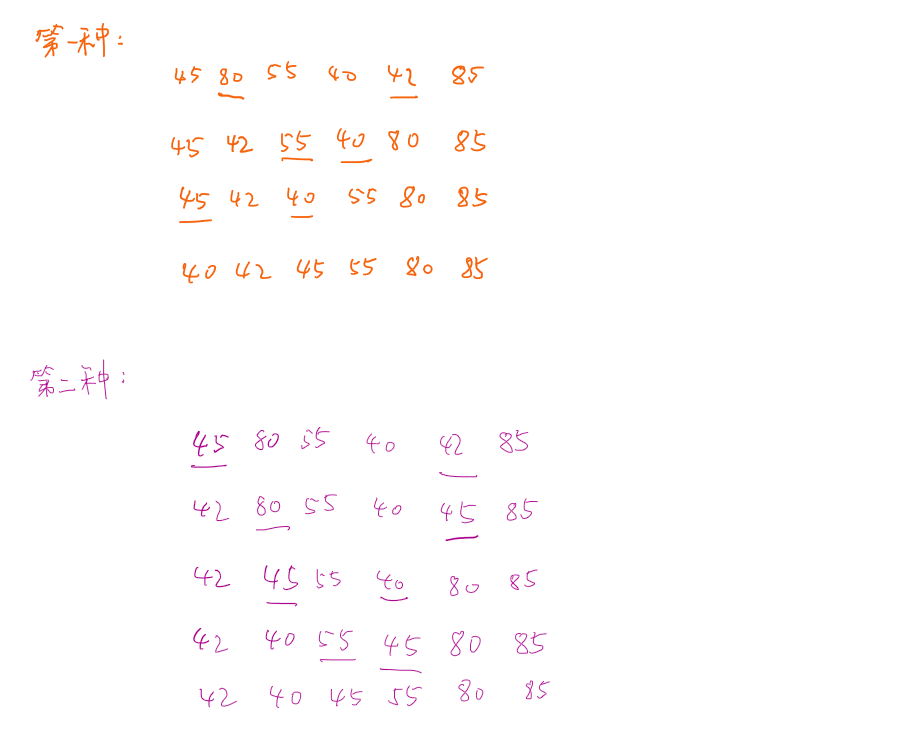 第一种：
45 80 55 40 42 85
45 42 55 40 80 85
45 42 40 55 80 85
40 42 45 55 80 85
第二种：
45 80 55 40 42 85
42 80 55 40 45 85
42 45 55 40 80 85
42 40 55 45 80 85
42 40 45 55 80 85